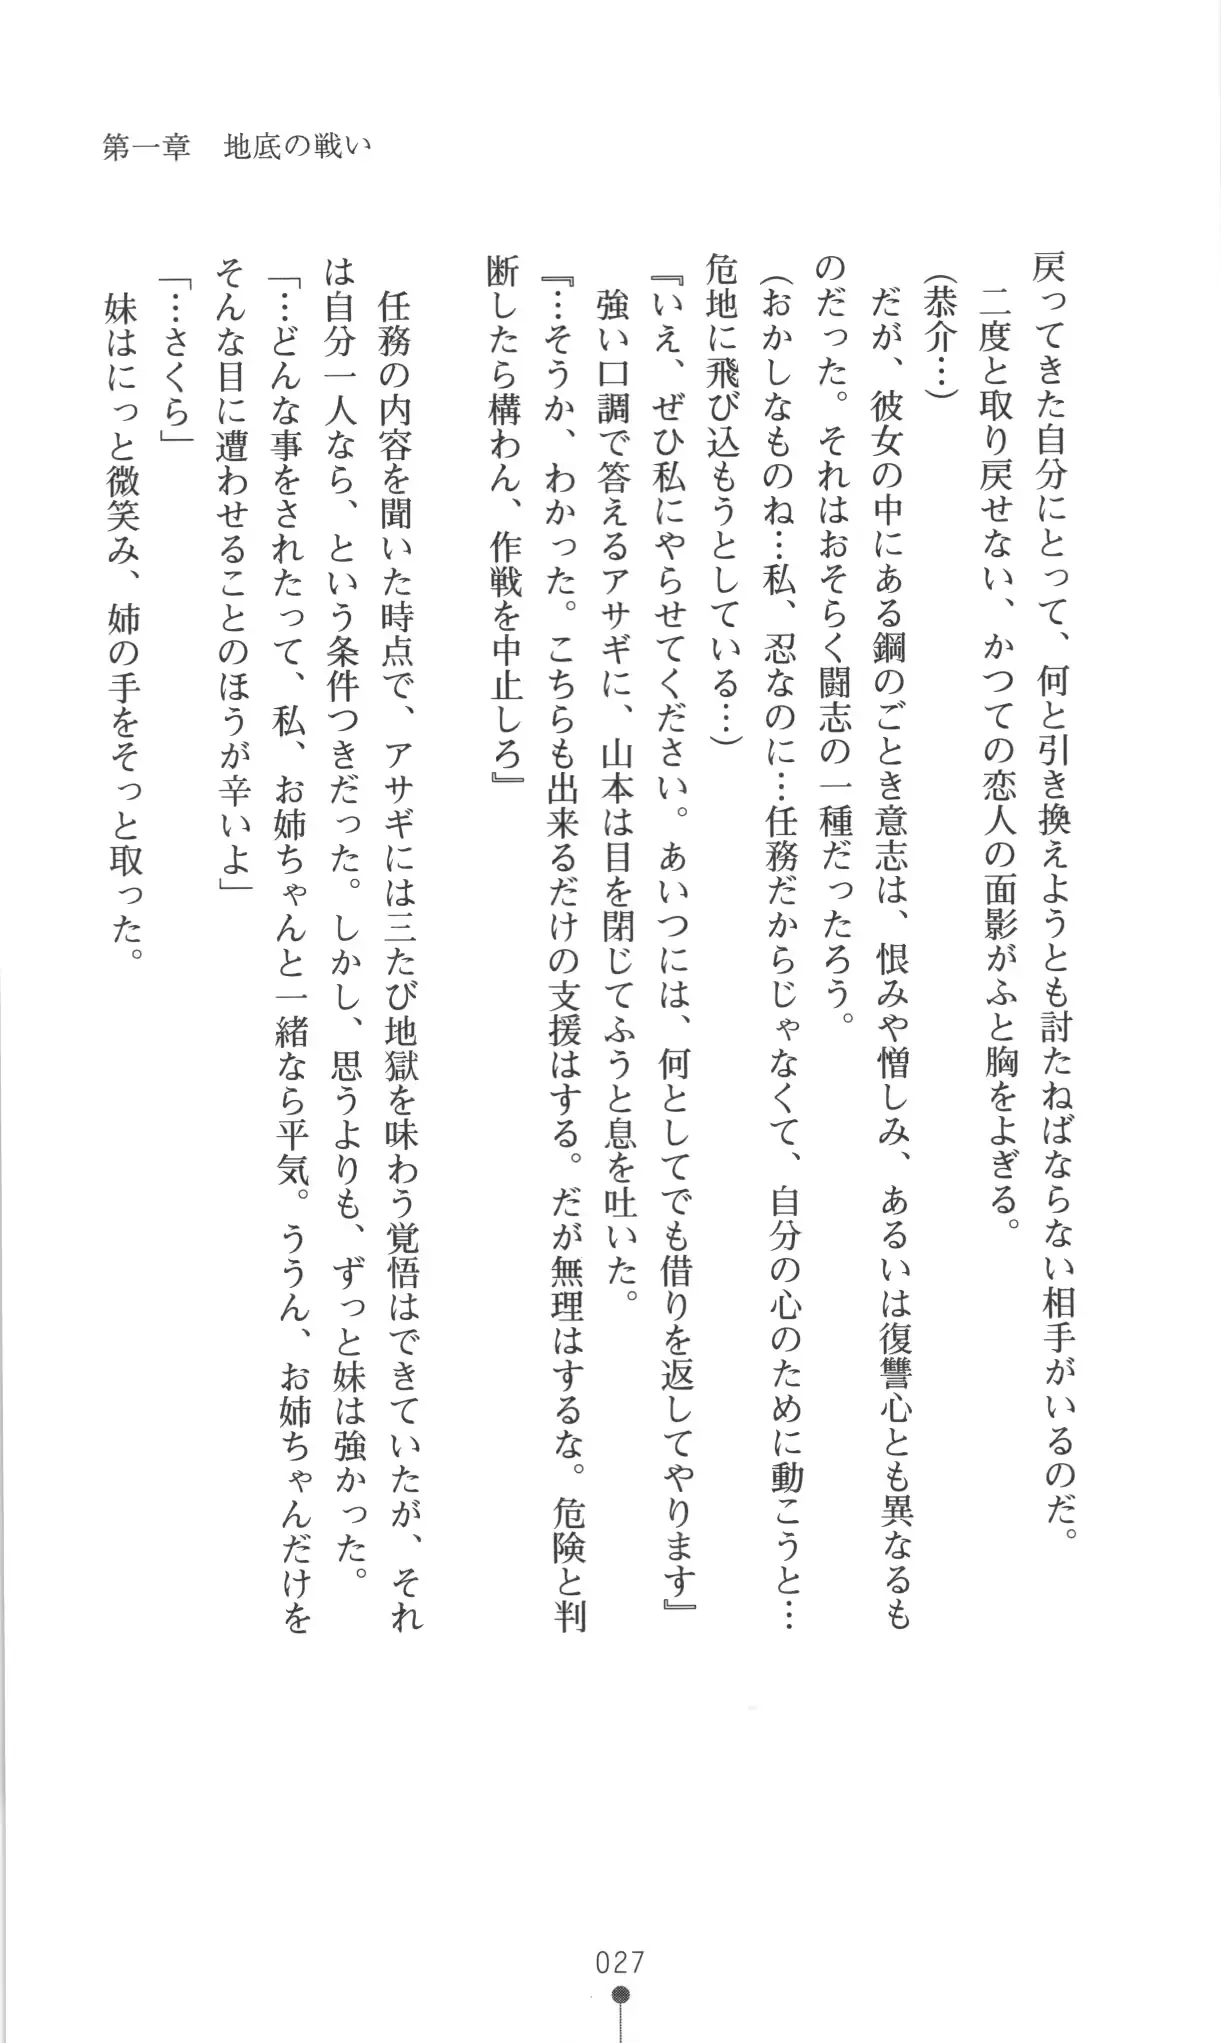 第一章　地底の戦い
戻ってきた自分にとって、何と引き換えようとも討たねばならない相手がいるのだ。
　二度と取り戻せない、かつての恋人の面影がふと胸をよぎる。
（恭介…）
　だが、彼女の中にある鋼のごとき意志は、恨みや憎しみ、あるいは復讐心とも異なるも
のだった。それはおそらく闘志の一種だったろう。
（おかしなものね…私、忍なのに…任務だからじゃなくて、自分の心のために動こうと…
危地に飛び込もうとしている…）
『いえ、ぜひ私にやらせてください。あいつには、何としてでも借りを返してやります』
　強い口調で答えるアサギに、山本は目を閉じてふうと息を吐いた。
『…そうか、わかった。こちらも出来るだけの支援はする。だが無理はするな。危険と判
断したら構わん、作戦を中止しろ』
　任務の内容を聞いた時点で、アサギには三たび地獄を味わう覚悟はできていたが、それ
は自分一人なら、という条件つきだった。しかし、思うよりも、ずっと妹は強かった。
「…どんな事をされたって、私、お姉ちゃんと一緒なら平気。ううん、お姉ちゃんだけを
そんな目に遭わせることのほうが辛いよ」
「…さくら」
　妹はにっと微笑み、姉の手をそっと取った。
027